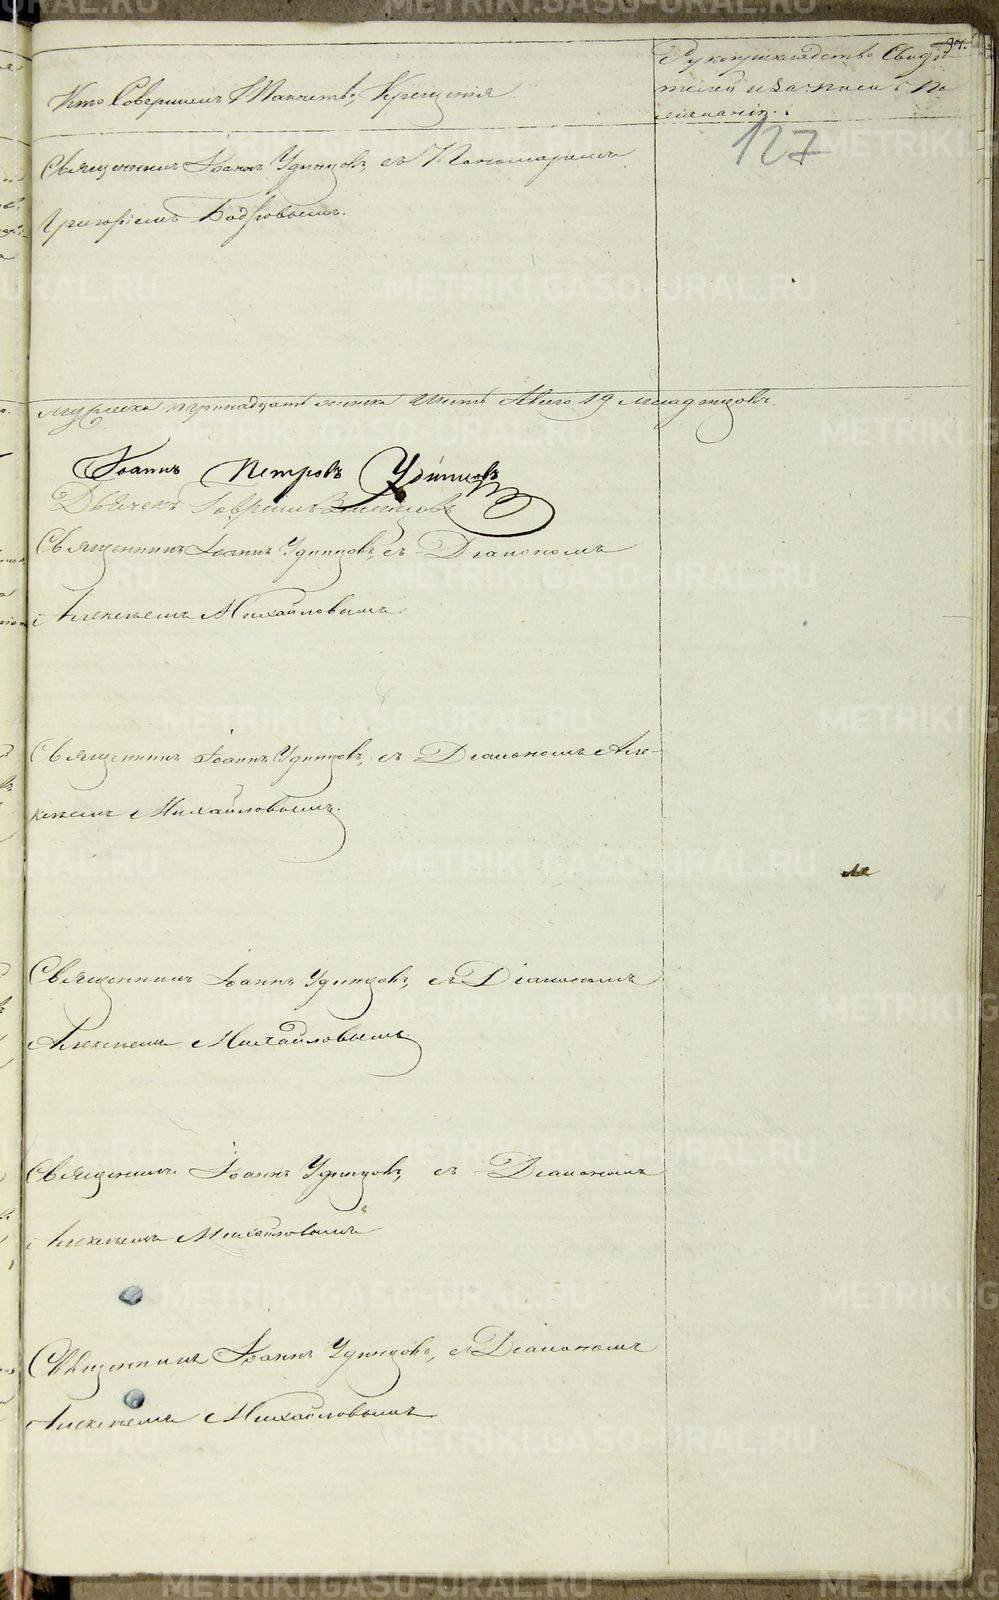 94.
Рукоприкладство Свидѣ
телей и Записи о По
желанію.
Кто Совершилъ Таинство Крещенія
127
Священникъ Іоаннъ Удинцовъ, съ Пономаремъ
Григоріемъ Бобровымъ.
мужеска тринадцать женска шесть А всего 19 младенцовъ.
Іоаннъ Петровъ Удинцовъ
Дьячекъ Гавріилъ
Священникъ Іоаннъ Удинцовъ, съ Діакономъ
Алексѣемъ Михайловымъ.
Священникъ Іоаннъ Удинцовъ, съ Діакономъ Але-
ксѣемъ Михайловымъ.
Священникъ Іоаннъ Удинцовъ, съ Діакономъ
Алексѣемъ Михайловымъ.
Священникъ Іоаннъ Удинцовъ, съ Діакономъ
Алексѣемъ Михайловымъ
Священникъ Іоаннъ Удинцовъ, съ Діакономъ
Алексѣемъ Михайловымъ
METRIKI.GASO-URAL.RU